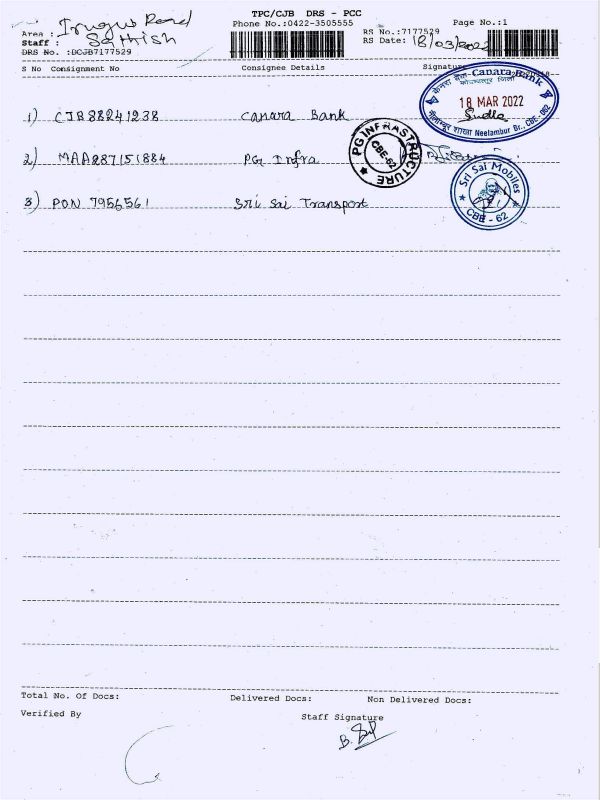 TPC/CJB DRS - PCC
Phone No.:0422-3505555
Page No.:1
Area : Irugur Road
Staff : Sathish
DRS No. :DCJB7177529
RS No.:7177529
RS Date: 18/03/2022
S No Consignment No Consignee Details Signature
1) CJB88241238 Canara Bank
केनरा बैंक Canara Bank
18 MAR 2022
Neelambur Br., CBE-62
2) MAA287151884 PG Infra
PG INFRASTRUCTURE
CBE-62
3) PON 7956561 Sri Sai Transport
Sri Sai Mobiles
CBE - 62
Total No. Of Docs: Delivered Docs: Non Delivered Docs:
Verified By Staff Signature